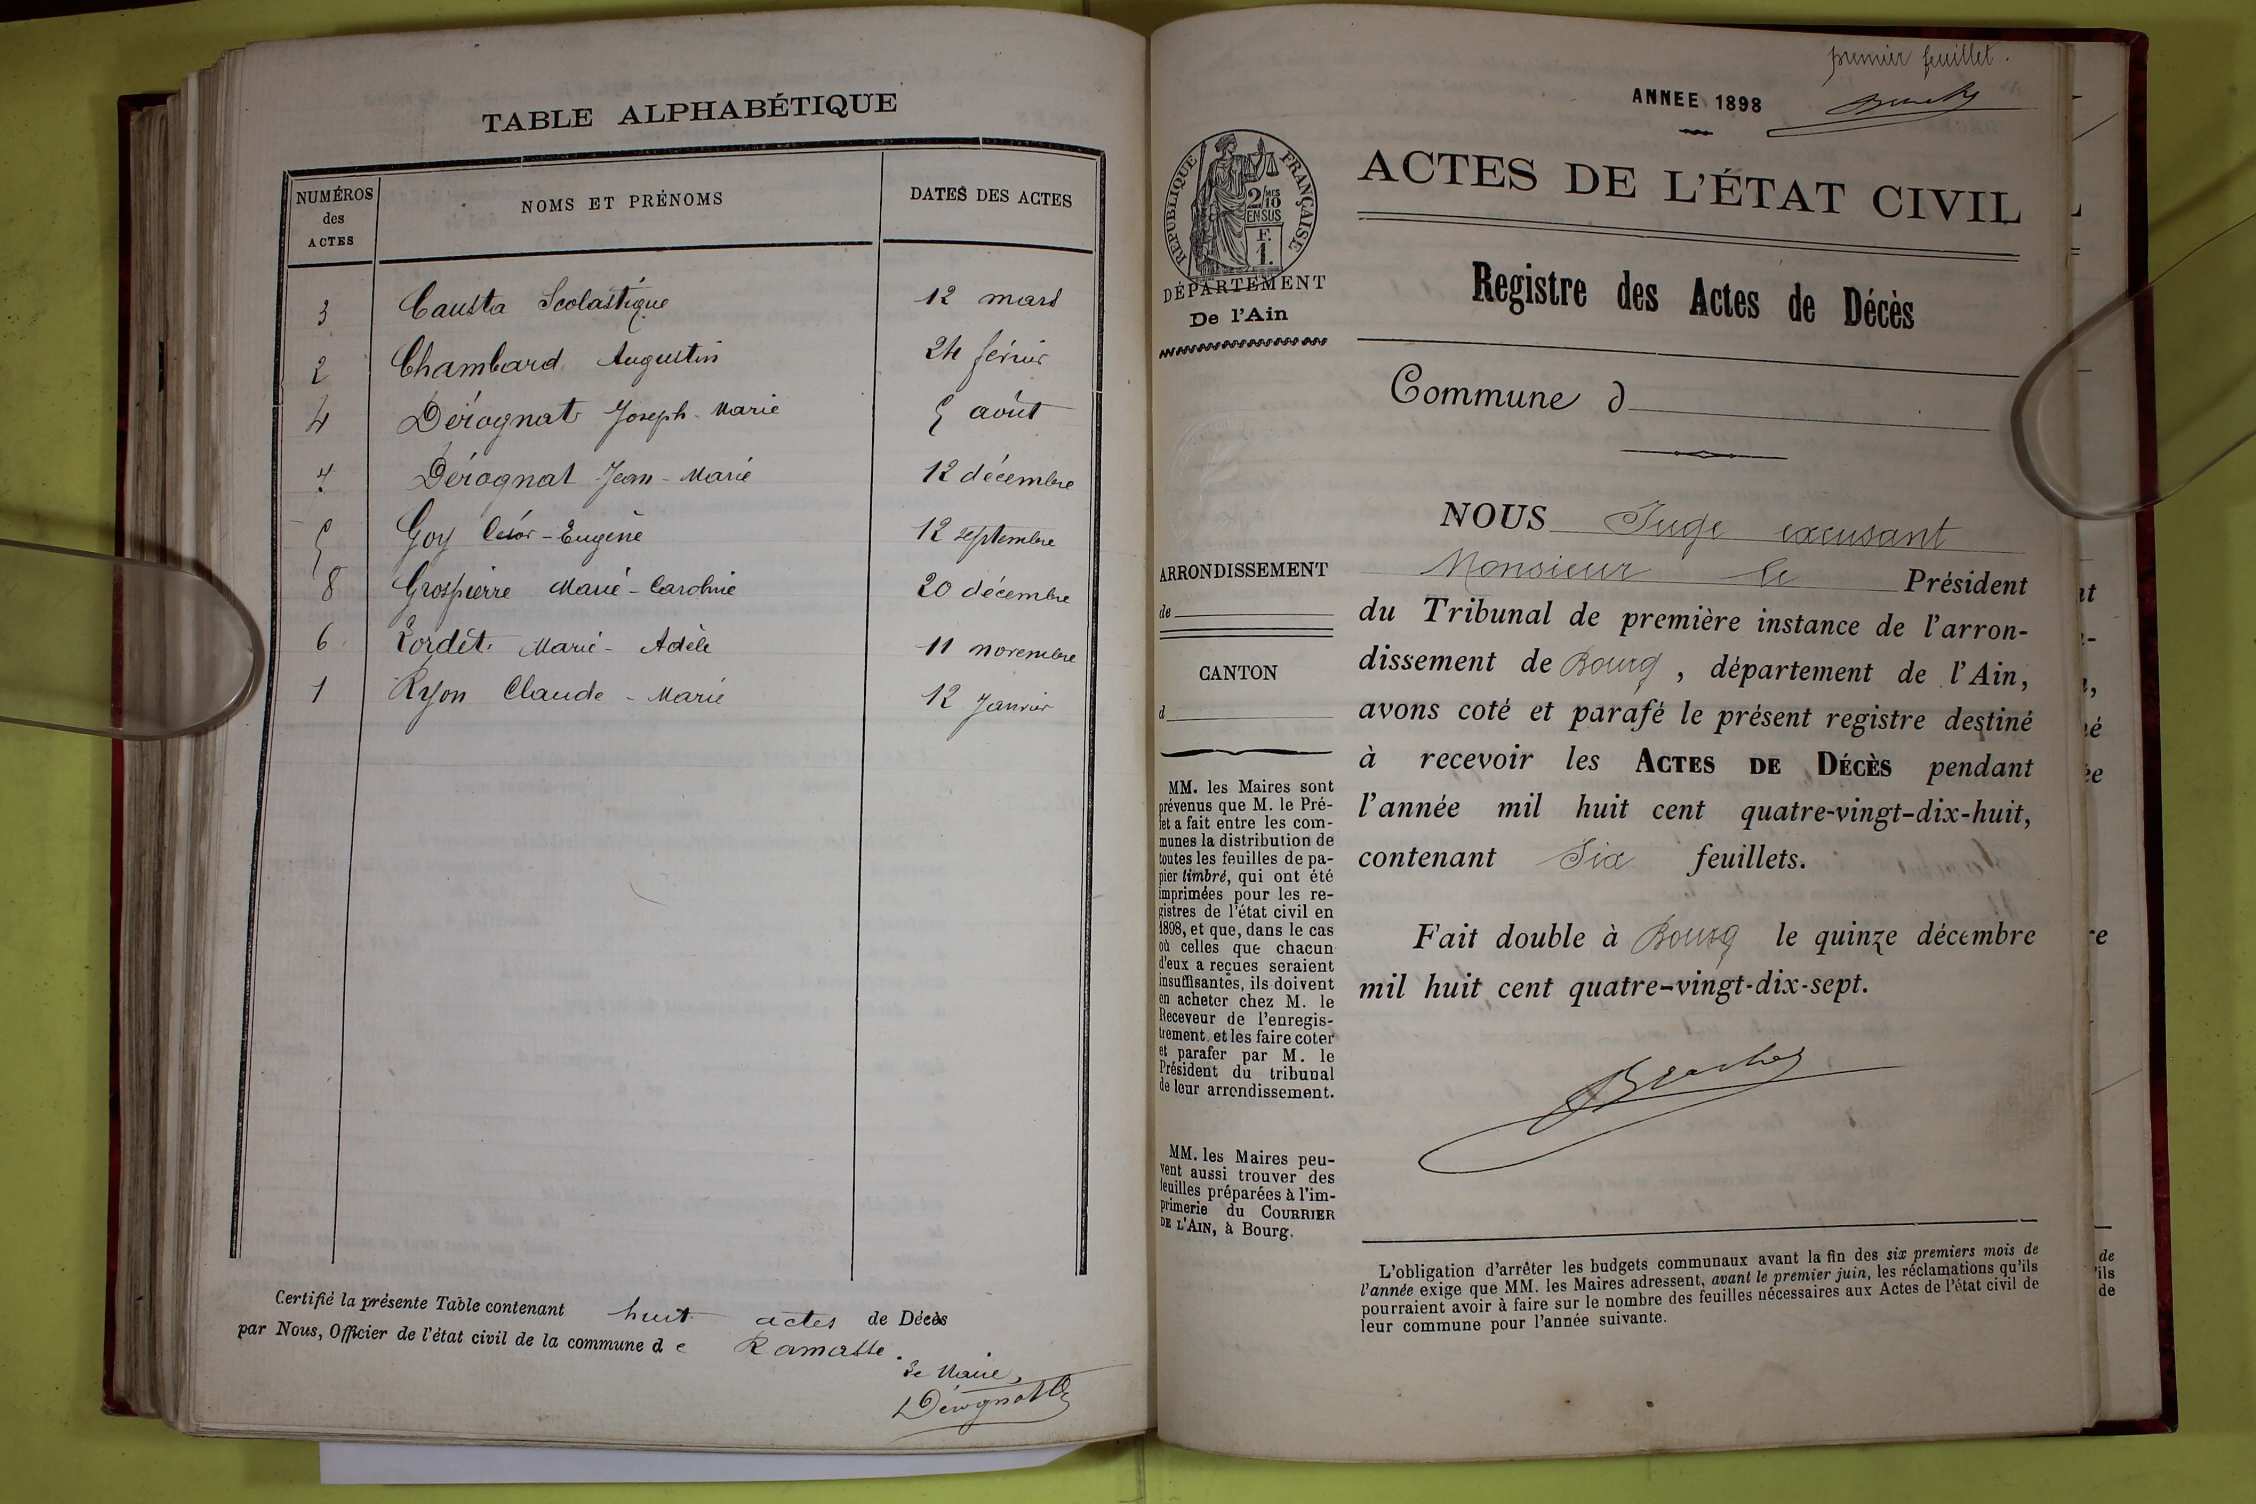 TABLE ALPHABÉTIQUE
NUMÉROS des ACTES
NOMS ET PRÉNOMS
DATES DES ACTES
3 Causta Scolastique 12 mars
2 Chambard Augustin 24 février
4 Dérognat Joseph-Marie 5 août
7 Dérognat Jean-Marie 12 décembre
5 Goy César-Eugène 12 septembre
8 Grospierre Marie-Caroline 20 décembre
6 Lordet Marie-Adèle 11 novembre
1 Ryon Claude-Marie 12 Janvier
Certifié la présente Table contenant huit actes de Décès
par Nous, Officier de l'état civil de la commune de Ramasse.
Le Maire,
Dérognat
premier feuillet.
ANNEE 1898
RÉPUBLIQUE FRANÇAISE
2/10 MES
EN SUS
F.
1.
DÉPARTEMENT
De l'Ain
ARRONDISSEMENT
de
CANTON
d
MM. les Maires sont
prévenus que M. le Pré-
fet a fait entre les com-
munes la distribution de
toutes les feuilles de pa-
pier timbré, qui ont été
imprimées pour les re-
gistres de l'état civil en
1898, et que, dans le cas
où celles que chacun
d'eux a reçues seraient
insuffisantes, ils doivent
en acheter chez M. le
Receveur de l'enregis-
trement et les faire coter
et parafer par M. le
Président du tribunal
de leur arrondissement.
MM. les Maires peu-
vent aussi trouver des
feuilles préparées à l'im-
primerie du COURRIER
DE L'AIN, à Bourg.
ACTES DE L'ÉTAT CIVIL
Registre des Actes de Décès
Commune d
NOUS Juge excusant
Monsieur le Président
du Tribunal de première instance de l'arron-
dissement de Bourg, département de l'Ain,
avons coté et parafé le présent registre destiné
à recevoir les ACTES DE DÉCÈS pendant
l'année mil huit cent quatre-vingt-dix-huit,
contenant Six feuillets.
Fait double à Bourg le quinze décembre
mil huit cent quatre-vingt-dix-sept.
L'obligation d'arrêter les budgets communaux avant la fin des six premiers mois de
l'année exige que MM. les Maires adressent, avant le premier juin, les réclamations qu'ils
pourraient avoir à faire sur le nombre des feuilles nécessaires aux Actes de l'état civil de
leur commune pour l'année suivante.